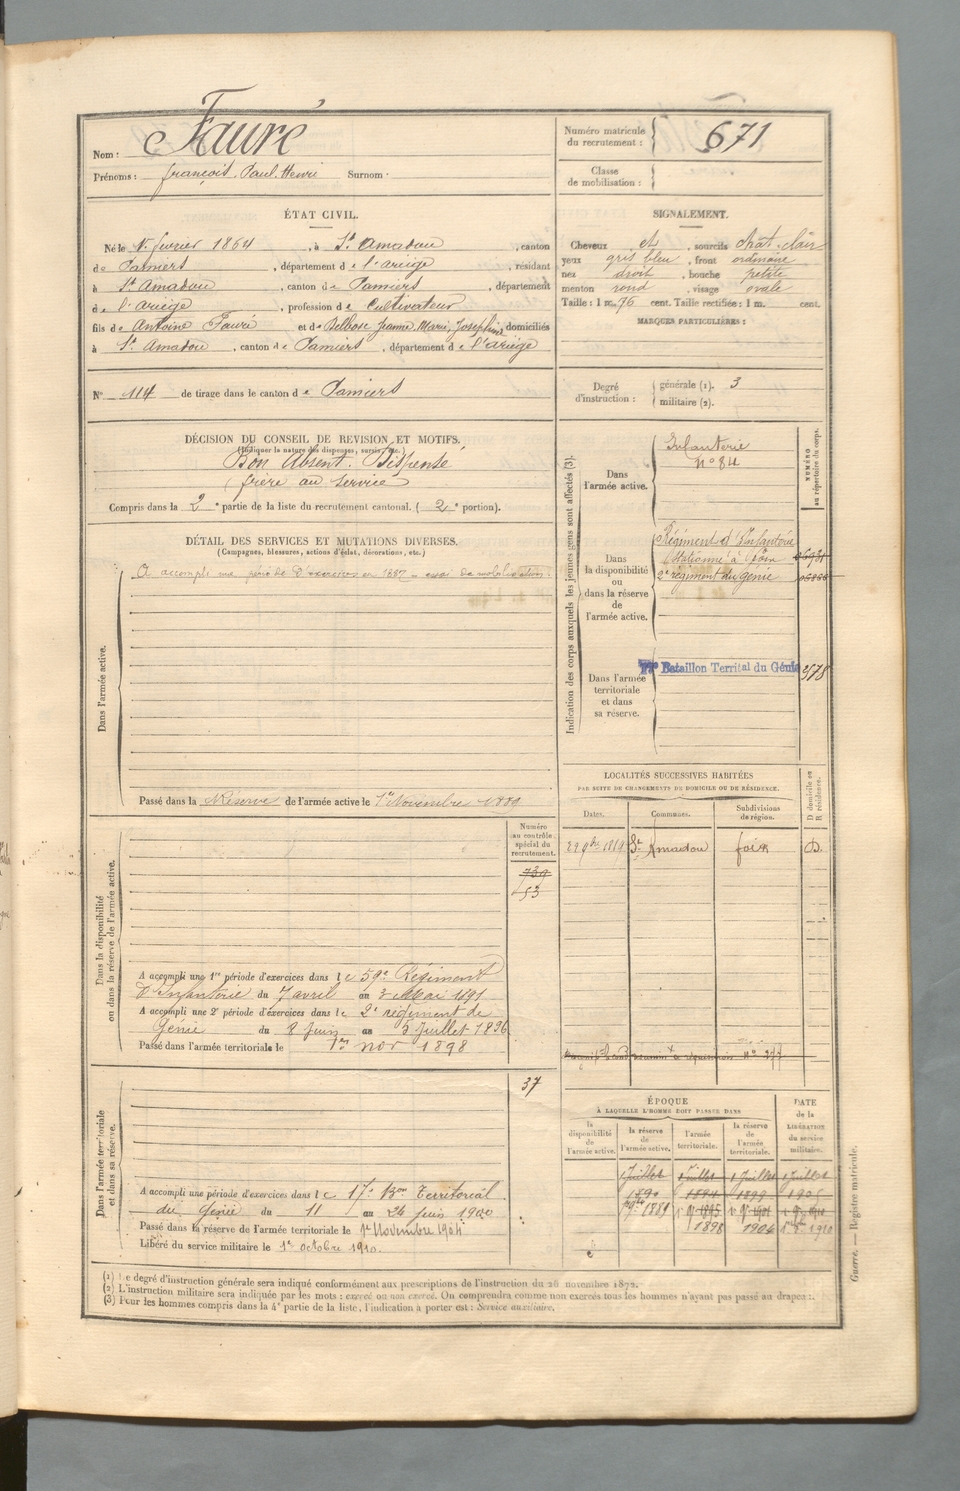 Nom : Fauré
Prénoms : françois. Paul. Henri Surnom ·
Numéro matricule du recrutement : 671
Classe de mobilisation :
ÉTAT CIVIL.
Né le 1er fevrier 1864, à St Amadou, canton
de Pamiers, département de l'ariège, résidant
à St Amadou, canton de Pamiers, département
de l'ariège, profession de Cultivateur
fils de Antoine Fauré et de Delbosc Jeanne, Marie, Josephine, domiciliés
à St Amadou, canton de Pamiers, département de l'ariège
SIGNALEMENT.
Cheveux et, sourcils chat. clair
yeux gris bleu, front ordinaire
nez droit, bouche petite
menton rond, visage ovale
Taille : 1 m. 76 cent. Taille rectifiée : 1 m. cent.
MARQUES PARTICULIÈRES :
No 114 de tirage dans le canton de Pamiers
Degré d'instruction : générale (1). 3
militaire (2).
DÉCISION DU CONSEIL DE REVISION ET MOTIFS.
(Indiquer la nature des dispenses, sursis, etc.)
Bon Absent. Dispensé
frère au service
Compris dans la 2e partie de la liste du recrutement cantonal. (2e portion).
DÉTAIL DES SERVICES ET MUTATIONS DIVERSES.
(Campagnes, blessures, actions d'éclat, décorations, etc.)
Dans l'armée active.
A accompli une période d'exercices en 1887 = essai de mobilisation.
Passé dans la Réserve de l'armée active le 1er Novembre 1889
Indication des corps auxquels les jeunes gens sont affectés (3).
NUMÉRO au répertoire du corps.
Dans l'armée active.
Infanterie
No 84
Dans la disponibilité ou dans la réserve de l'armée active.
Régiment d'Infanterie
Stationné à Foix
2e régiment du génie
Dans l'armée territoriale et dans sa réserve.
17e Bataillon Territal du Génie 3578
LOCALITÉS SUCCESSIVES HABITÉES
PAR SUITE DE CHANGEMENTS DE DOMICILE OU DE RÉSIDENCE.
Dates. Communes. Subdivisions de région. D domicile ou R résidence.
29 9bre 1889 St Amadou foix D.
Dans la disponibilité ou dans la réserve de l'armée active.
Numéro au contrôle spécial du recrutement.
739
53
A accompli une 1re période d'exercices dans le 59e Régiment
d'Infanterie du 7 avril au 3 Mai 1891
A accompli une 2e période d'exercices dans le 2e régiment de
Génie du 8 Juin au 5 Juillet 1896
Passé dans l'armée territoriale le 1er nov 1898
No 277
Dans l'armée territoriale et dans sa réserve.
37
A accompli une période d'exercices dans le 17e Bon Territorial
du Génie du 11 au 24 Juin 1900
Passé dans la réserve de l'armée territoriale le 1er Novembre 1904
Libéré du service militaire le 1er octobre 1910.
ÉPOQUE
À LAQUELLE L'HOMME DOIT PASSER DANS
DATE de la LIBÉRATION du service militaire.
la disponibilité de l'armée active. la réserve de l'armée active. l'armée territoriale. la réserve de l'armée territoriale.
1 Juillet 1 Juillet 1 Juillet 1 Juillet
1890 1894 1899 1905
1889 1895 1901 1910
1898 1904 1910
(1) Le degré d'instruction générale sera indiqué conformément aux prescriptions de l'instruction du 28 novembre 1872.
(2) L'instruction militaire sera indiquée par les mots : exercé ou non exercé. On comprendra comme non exercés tous les hommes n'ayant pas passé au drapeau.
(3) Pour les hommes compris dans la 4e partie de la liste, l'indication à porter est : Service auxiliaire.
Guerre. — Registre matricule.